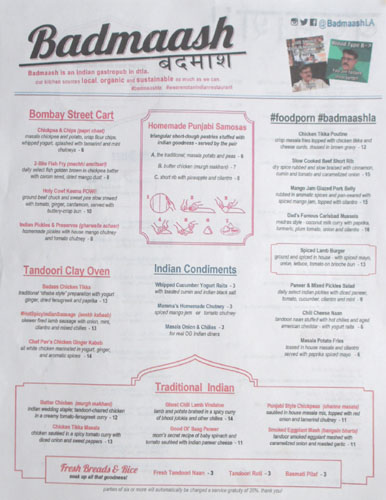 Badmaash
बदमाश
@BadmaashLA
Badmaash is an Indian gastropub in dtla.
our kitchen sources local, organic and sustainable as much as we can.
#badmaashla #wearenotanindianrestaurant
Bombay Street Cart
Chickpea & Chips (papri chaat)
masala chickpeas and potato, crisp flour chips,
whipped yogurt, splashed with tamarind and mint
chutneys - 8
fish Fry (machli amritsari)
Holy Cow! Keema POW!
ground beef chuck and sweet pea stew tossed
with tomato, ginger, cardamom, served with
buttery-crisp bun - 10
Indian Pickles & Preserves (gharwala achaar)
homemade pickles with house mango chutney
and tomato chutney - 6
Homemade Punjabi Samosas
triangular short-dough pastries stuffed with
indian goodness - served by the pair
A. the traditional; masala potato and peas - 6
B. butter chicken (murgh makhani) - 7
C. short rib with pineapple and cilantro - 8
#foodporn #badmaashla
Chicken Tikka Poutine
crisp masala fries topped with chicken tikka and
cheese curds, doused in brown gravy - 12
Slow Cooked Beef Short Rib
dry spice rubbed and slow braised with cinnamon,
cumin and tomato and caramelized onion - 15
Mango Jam Glazed Pork Belly
rubbed in aromatic spices and pan-seared with
spiced mango jam, topped with cilantro - 14
Dad's Famous Carlsbad Mussels
madras style - coconut milk curry with paprika,
turmeric, plum tomato, onion and cilantro - 16
Spiced Lamb Burger
ground and spiced in house - with spiced mayo,
onion, lettuce, tomato on brioche bun - 13
Paneer & Mixed Pickles Salad
daily select indian pickles with diced paneer,
tomato, cucumber, cilantro and mint - 9
Chili Cheese Naan
tandoori naan stuffed with hot chilies and aged
american cheddar - with yogurt raita - 5
Masala Potato Fries
tossed in house masala and cilantro
served with paprika spiced mayo - 6
Tandoori Clay Oven
Badass Chicken Tikka
traditional "dhaba style" preparation with yogurt
ginger, dried fenugreek and paprika - 13
skewer fired lamb sausage with onion, mint,
cilantro and mixed chilies - 13
Chef Pwr's Chicken Ginger Kabab
all white chicken marinated in yogurt, ginger,
and aromatic spices - 14
Indian Condiments
Whipped Cucumber Yogurt Raita - 3
with toasted cumin and indian black salt
Mamma's Homemade Chutney - 3
spiced mango jam or tomato chutney
Masala Onion & Chilies - 2
for real OG Indian diners
Traditional Indian
Butter Chicken (murgh makhani)
indian wedding staple; tandoori-cleaved chicken
in a creamy tomato-fenugreek curry - 13
Chicken Tikka Masala
chicken sautéed in a spicy tomato curry with
diced onion and sweet peppers - 13
Ghost Chili Lamb Vindaloo
lamb and potato braised in a spicy curry
of blood jolokia and other chilies - 14
Good Ol' Saag Paneer
mom's secret recipe of baby spinach and
tomato sautéed with indian paneer cheese - 11
Punjabi Style Chickpeas (channa masala)
sautéed in house masala mix, topped with red
onion and tamarind chutney - 11
Smoked Eggplant Mash (baingan bharta)
tandoor smoked eggplant mashed with
caramelized onion and roasted garlic - 11
Fresh Breads & Rice
soak up all that goodness!
Fresh Tandoori Naan - 3
Tandoori Roti - 3
Basmati Pilaf - 3
parties of six or more will automatically be charged a service gratuity of 20%. thank you!